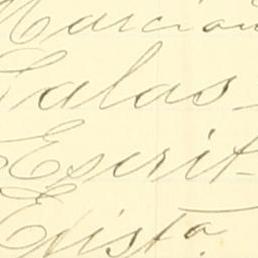 Marcian
Calas-
Escrit-
Evista.